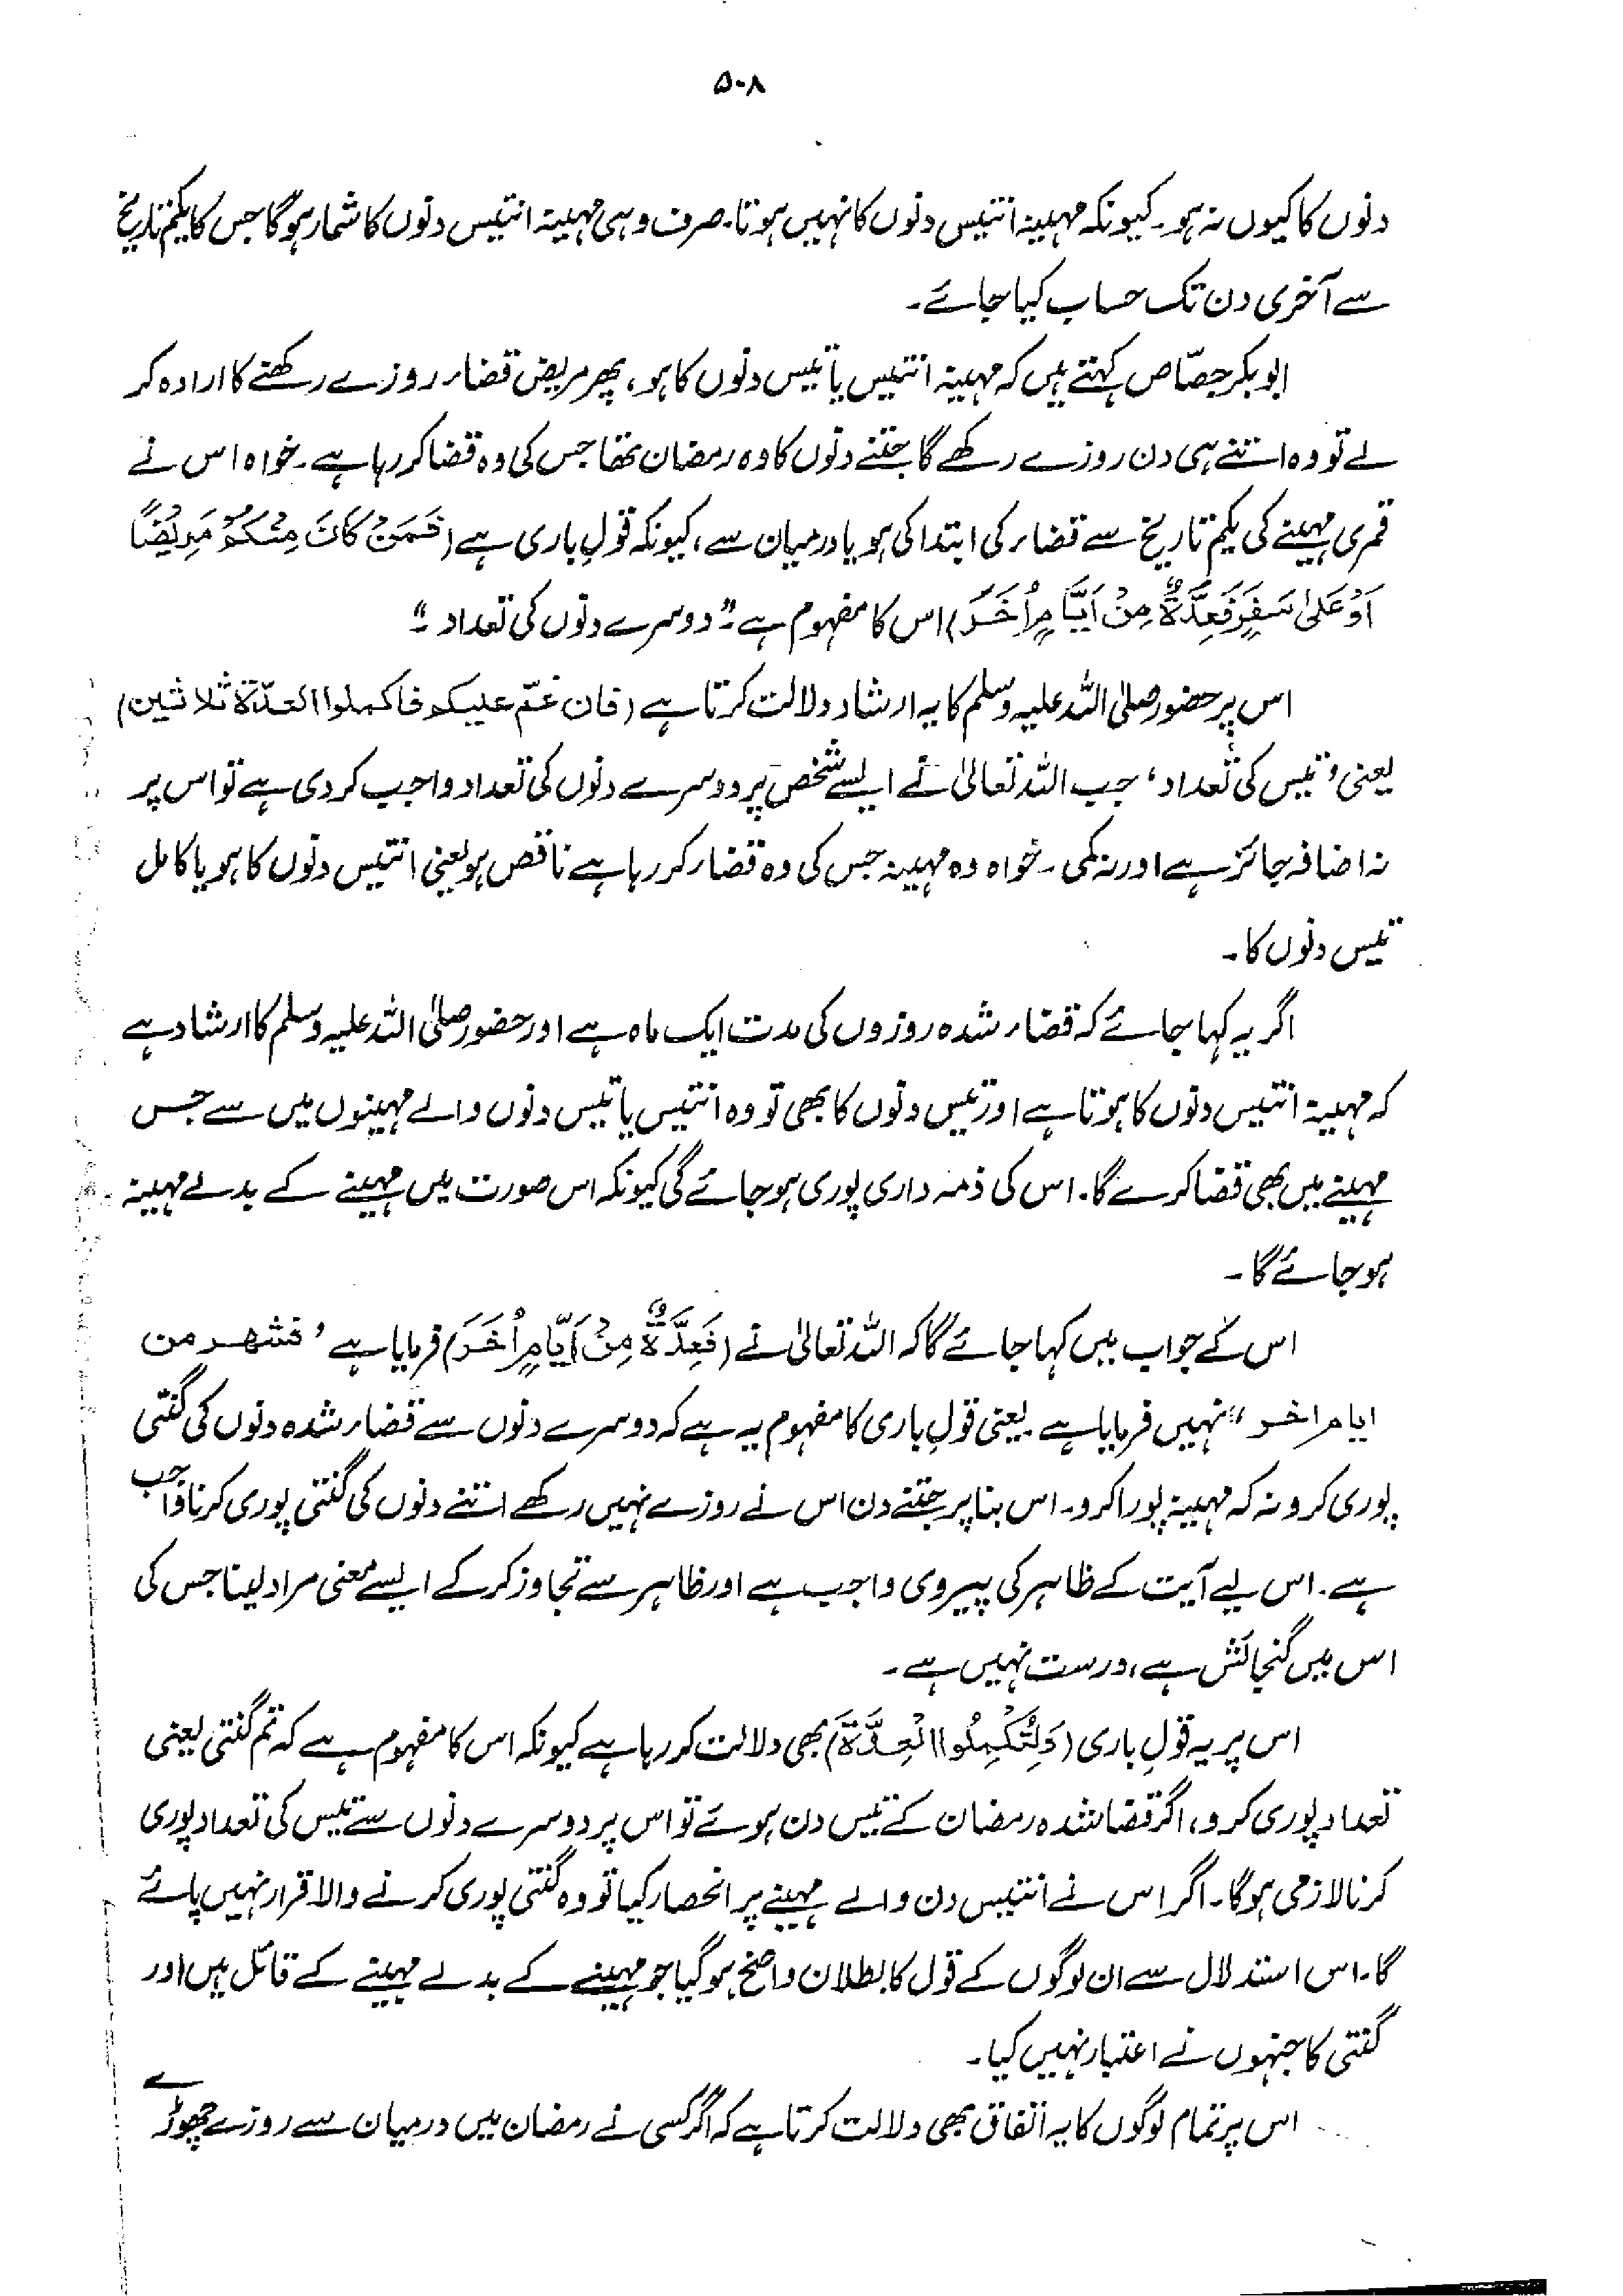 ۵۰۸
دنوں کا کیوں نہ ہو۔ کیونکہ مہینہ انتیس دنوں کا نہیں ہوتا۔ صرف وہی مہینہ انتیس دنوں کا شمار ہوگا جس کا یکم تاریخ
سے آخری دن تک حساب کیا جائے۔
ابوبکر جصّاص کہتے ہیں کہ مہینہ انتیس یا تیس دنوں کا ہو، پھر مریض قضاء روزے رکھنے کا ارادہ کر
لے تو وہ اتنے ہی دن روزے رکھے گا جتنے دنوں کا وہ رمضان تھا جس کی وہ قضا کر رہا ہے۔ خواہ اس نے
قمری مہینے کی یکم تاریخ سے قضاء کی ابتدا کی ہو یا درمیان سے، کیونکہ قولِ باری ہے (فَمَنْ كَانَ مِنْكُمْ مَرِيْضًا
اَوْ عَلٰی سَفَرٍ فَعِدَّةٌ مِنْ اَيَّامٍ اُخَرَ) اس کا مفہوم ہے۔" دوسرے دنوں کی تعداد۔"
اس پر حضور صلی اللہ علیہ وسلم کا یہ ارشاد دلالت کرتا ہے (فان غمّ علیکم فاکملوا العدّة ثلاثین)
یعنی 'تیس کی تعداد' جب اللہ تعالیٰ نے ایسے شخص پر دوسرے دنوں کی تعداد واجب کر دی ہے تو اس پر
نہ اضافہ جائز ہے اور نہ کمی۔ خواہ وہ مہینہ جس کی وہ قضاء کر رہا ہے ناقص ہو یعنی انتیس دنوں کا ہو یا کامل
تیس دنوں کا۔
اگر یہ کہا جائے کہ قضاء شدہ روزوں کی مدت ایک ماہ ہے اور حضور صلی اللہ علیہ وسلم کا ارشاد ہے
کہ مہینہ انتیس دنوں کا ہوتا ہے اور تیس دنوں کا بھی تو وہ انتیس یا تیس دنوں والے مہینوں میں سے جس
مہینے میں بھی قضا کرے گا۔ اس کی ذمہ داری پوری ہو جائے گی کیونکہ اس صورت میں مہینے کے بدلے مہینہ
ہو جائے گا۔
اس کے جواب میں کہا جائے گا کہ اللہ تعالیٰ نے (فَعِدَّةٌ مِنْ اَيَّامٍ اُخَرَ) فرمایا ہے ' فشهر من
ایام اخر " نہیں فرمایا ہے یعنی قولِ باری کا مفہوم یہ ہے کہ دوسرے دنوں سے قضاء شدہ دنوں کی گنتی
پوری کرو نہ کہ مہینہ پورا کرو۔ اس بنا پر جتنے دن اس نے روزے نہیں رکھے اتنے دنوں کی گنتی پوری کرنا واجب
ہے۔ اس لیے آیت کے ظاہر کی پیروی واجب ہے اور ظاہر سے تجاوز کر کے ایسے معنی مراد لینا جس کی
اس میں گنجائش ہے، درست نہیں ہے۔
اس پر یہ قولِ باری (وَلِتُكْمِلُوا الْعِدَّةَ) بھی دلالت کر رہا ہے کیونکہ اس کا مفہوم ہے کہ تم گنتی یعنی
تعداد پوری کرو، اگر قضا شدہ رمضان کے تیس دن ہوئے تو اس پر دوسرے دنوں سے تیس کی تعداد پوری
کرنا لازمی ہوگا۔ اگر اس نے انتیس دن والے مہینے پر انحصار کیا تو وہ گنتی پوری کرنے والا قرار نہیں پائے
گا۔ اس استدلال سے ان لوگوں کے قول کا بطلان واضح ہو گیا جو مہینے کے بدلے مہینے کے قائل ہیں اور
گنتی کا جنہوں نے اعتبار نہیں کیا۔
اس پر تمام لوگوں کا یہ اتفاق بھی دلالت کرتا ہے کہ اگر کسی نے رمضان میں درمیان سے روزے چھوڑے